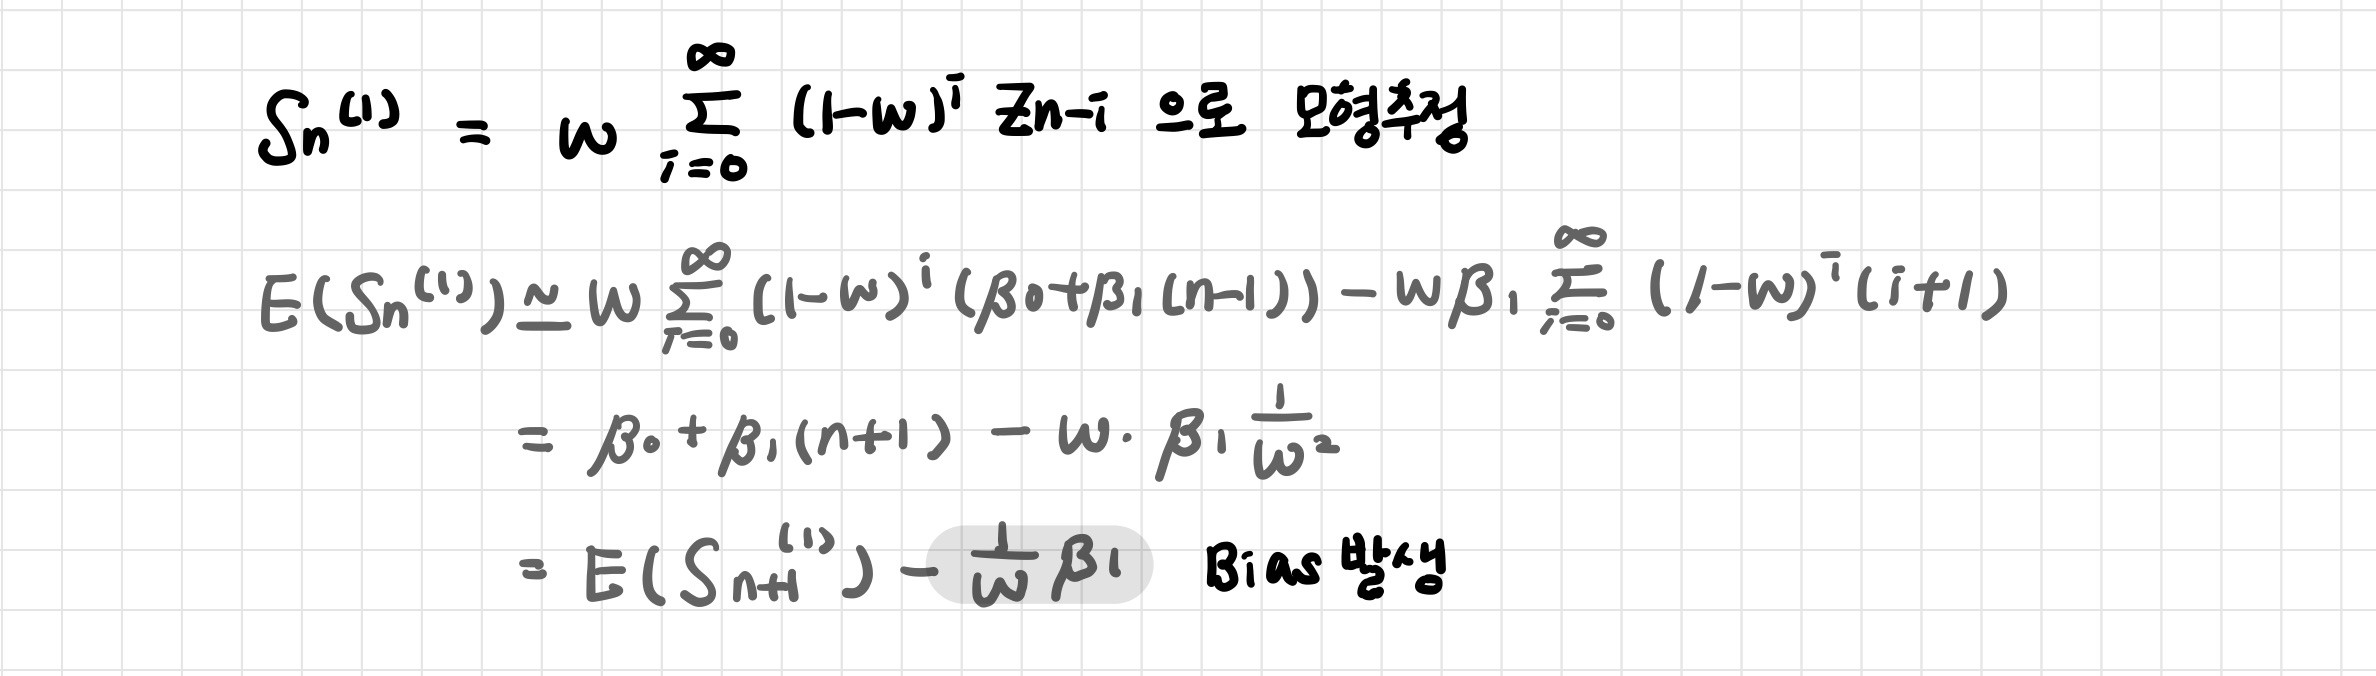 Sn⁽¹⁾ = w ∞Σi=0 (1-w)ⁱ Zn-i 으로 모형추정
E(Sn⁽¹⁾) ≃ w ∞Σi=0 (1-w)ⁱ (β0+β1(n-1)) - wβ1 ∞Σi=0 (1-w)ⁱ (i+1)
= β0+β1(n+1) - w·β1 1/w²
= E(Sn+1⁽¹⁾) - 1/w β1 Bias 발생